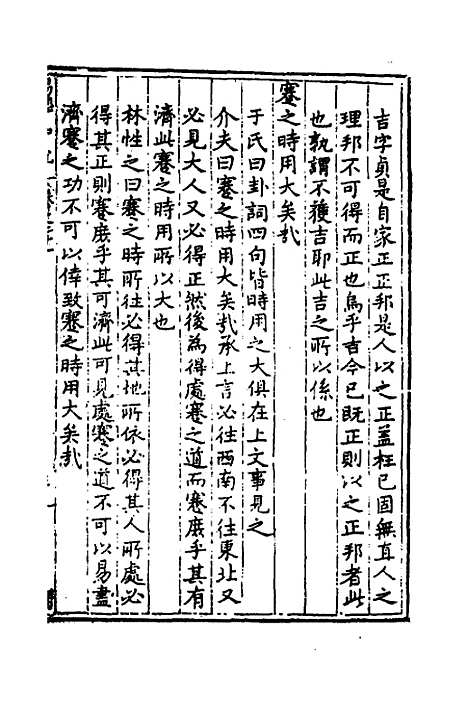 吉字貞是自家正正邦是人以之正蓋枉已固無直人之
理邦不可得而正也烏乎吉今已既正則以之正邦者此
也孰謂不獲吉耶此吉之所以係也
蹇之時用大矣哉
于氏曰卦詞四句皆時用之大俱在上文事見之
介夫曰蹇之時用大矣哉承上言必往西南不往東北又
必見大人又必得正然後為得處蹇之道而蹇庶乎其有
濟此蹇之時用所以大也
林性之曰蹇之時所往必得其地所依必得其人所處必
得其正則蹇庶乎其可濟此可見處蹇之道不可以易盡
濟蹇之功不可以倖致蹇之時用大矣哉